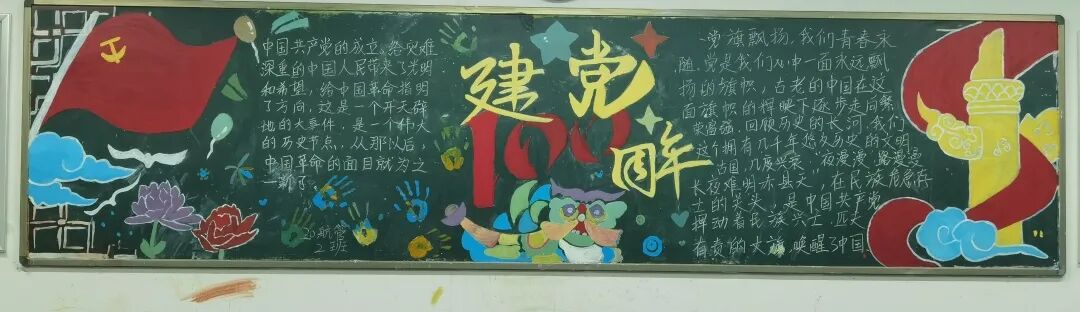 中国共产党的成立,给灾难
深重的中国人民带来了光明
和希望,给中国革命指明
了方向,这是一个开天辟
地的大事件,是一个伟大
的历史节点,从那以后,
中国革命的面目就为之
一新了
20航管
2班
建党
100
周年
党旗飘扬,我们青春永
随,党是我们心中一面永远飘
扬的旗帜,古老的中国在这
面旗帜的辉映下逐步走向繁
荣富强,回顾历史的长河,我们
这个拥有几千年悠久历史的文明
古国,几度兴衰,“夜漫漫,路漫漫
长夜难明赤县天”,在民族危急存
亡的关头,是中国共产党
挥动着民族兴亡,匹夫
有责的大旗,唤醒了中国